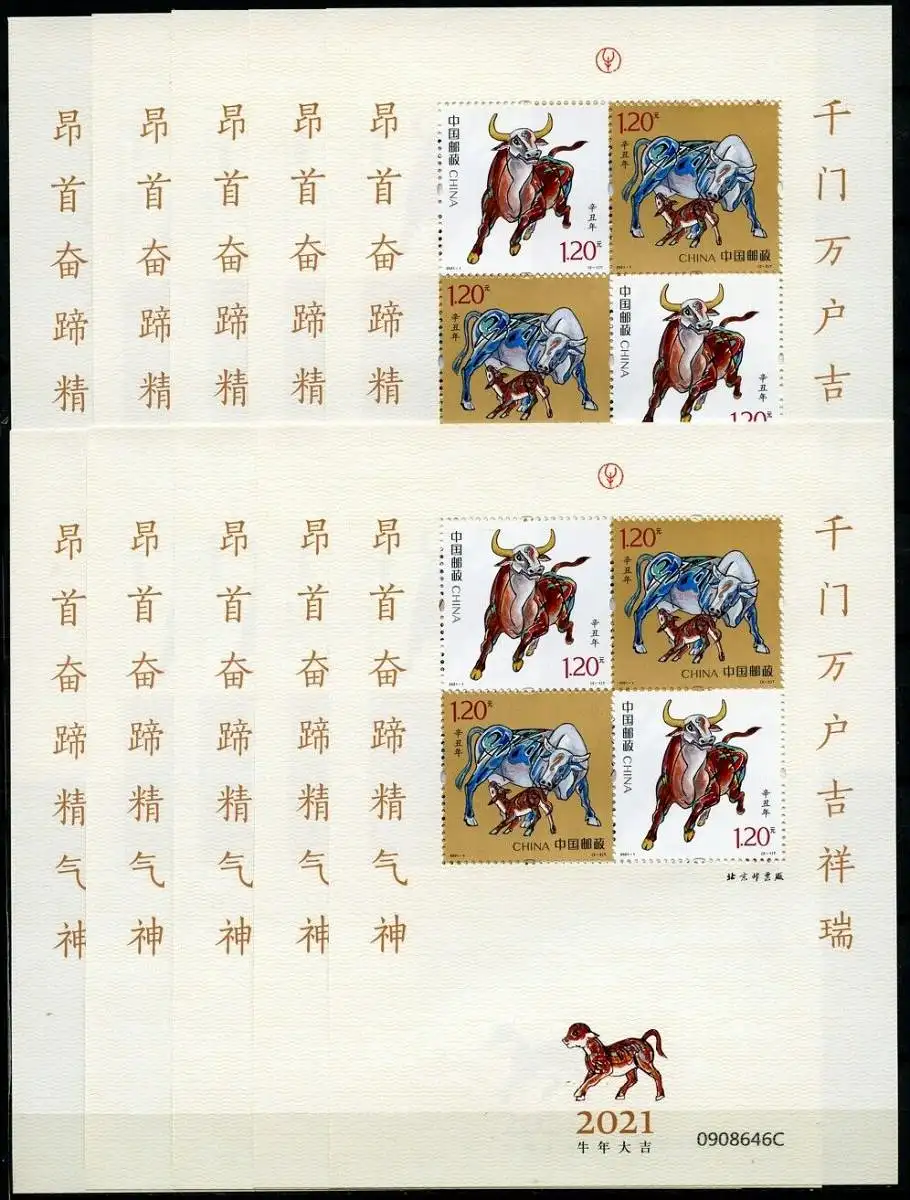 昂首奋蹄精
昂首奋蹄精
昂首奋蹄精
昂首奋蹄精
昂首奋蹄精
中国邮政 CHINA
辛丑年
1.20元
2021-1
1.20元
辛丑年
CHINA 中国邮政
2021-1
1.20元
辛丑年
中国邮政 CHINA
辛丑年
1.20元
千门万户吉
昂首奋蹄精气神
昂首奋蹄精气神
昂首奋蹄精气神
昂首奋蹄精气神
昂首奋蹄精气神
中国邮政 CHINA
辛丑年
1.20元
2021-1
1.20元
辛丑年
CHINA 中国邮政
2021-1
1.20元
辛丑年
CHINA 中国邮政
2021-1
中国邮政 CHINA
辛丑年
1.20元
2021-1
北京邮票厂
千门万户吉祥瑞
2021
牛年大吉
0908646C